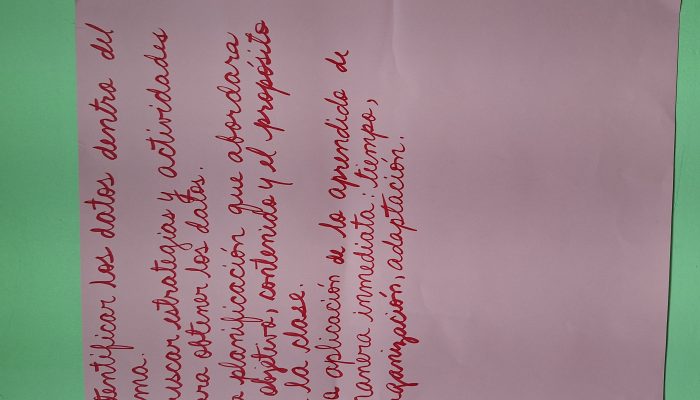 tentificar los datos dentro del
ma.
uscar estrategias y actividades
ra obtener los datos.
a planificación que abordara
objetivo, contenido y el propósito
la clase.
a aplicación de lo aprendido de
manera inmediata: tiempo,
rganización, adaptación.